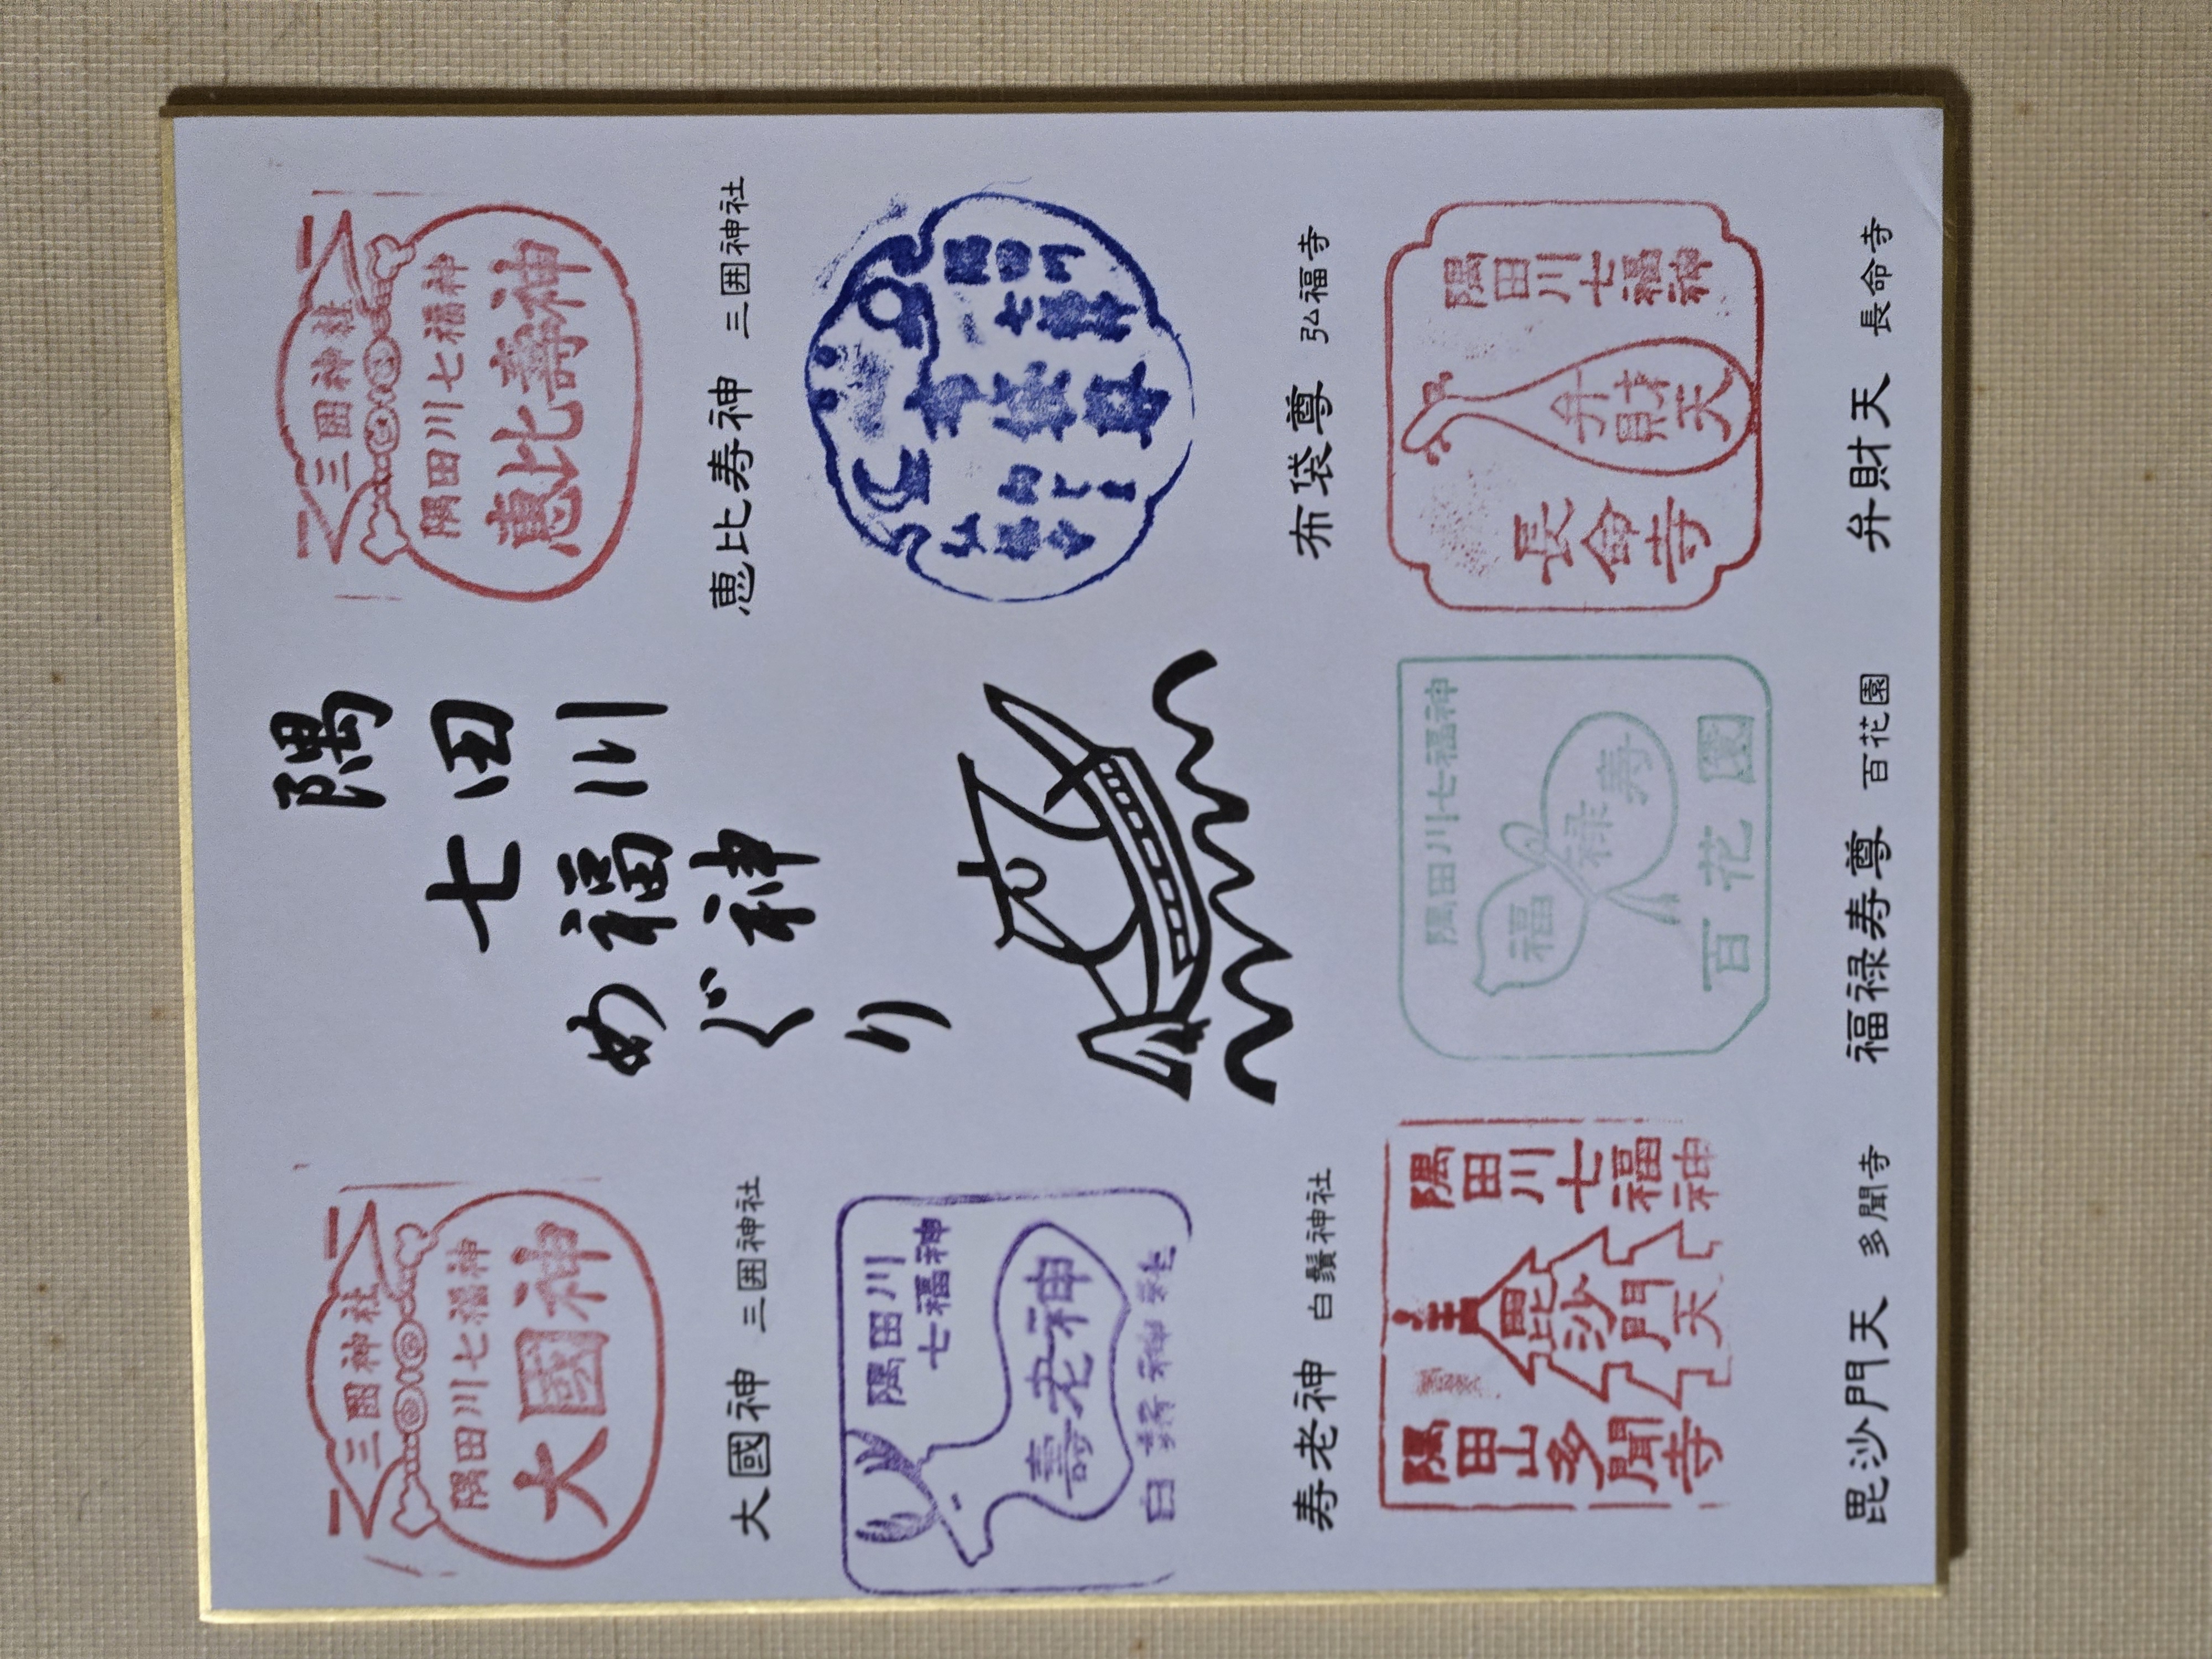 隅田川
七福神
めぐり
三囲神社
隅田川七福神
恵比壽神
恵比寿神 三囲神社
三囲神社
隅田川七福神
大國神
大國神 三囲神社
隅田川
七福神
布袋尊
弘福寺
布袋尊 弘福寺
隅田川
七福神
壽老神
白鬚神社
寿老神 白鬚神社
隅田川七福神
弁財天
長命寺
弁財天 長命寺
隅田川七福神
福
禄寿
百花園
福禄寿尊 百花園
隅田川七福神
毘沙門天
隅田山多聞寺
毘沙門天 多聞寺